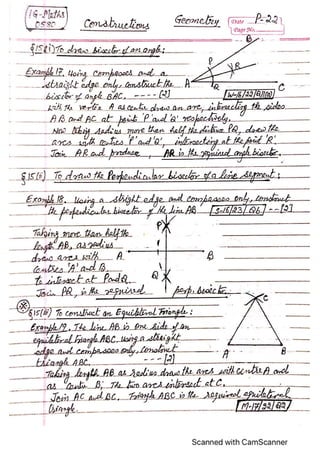 IG-Maths
0580
Constructions
Geometry
Date P-22
Page No.
§15(i) To draw bisector of an angle:
Example 17. Using compasses and a
straight edge only, construct the
bisector of angle BAC. --- [2]
with the vertex A as centre draw an arc, intersecting the sides
AB and AC at point 'P' and 'Q' respectively.
Now taking radius more than half the distance PQ, draw the
arcs with centres 'P' and 'Q', intersecting at the point 'R'.
Join AR and produce, AR is the required angle bisector.
B
P
R
A
Q
C
§15(ii) To draw the Perpendicular bisector of a line segment:
Example 18. Using a straight edge and compasses only, construct
the perpendicular bisector of the line AB [S-16/23/Q6] --[2]
Taking more than half the
length AB, as radius
draw arcs with
centres 'A' and B
to intersect at P and Q.
Join PQ, is the required perp. bisector.
P
A
B
Q
§15(iii) To construct an Equilateral Triangle:
Example 19. The line AB is one side of an
equilateral triangle ABC. Using a straight
edge and compasses only, construct
triangle ABC. --- [2]
Taking length AB as radius draw the arcs with centre A and
as centre B, The two arcs intersect at C.
Join AC and BC. Triangle ABC is the required equilateral
triangle.
[M-17/22/Q7]
C
A
B
Scanned with CamScanner